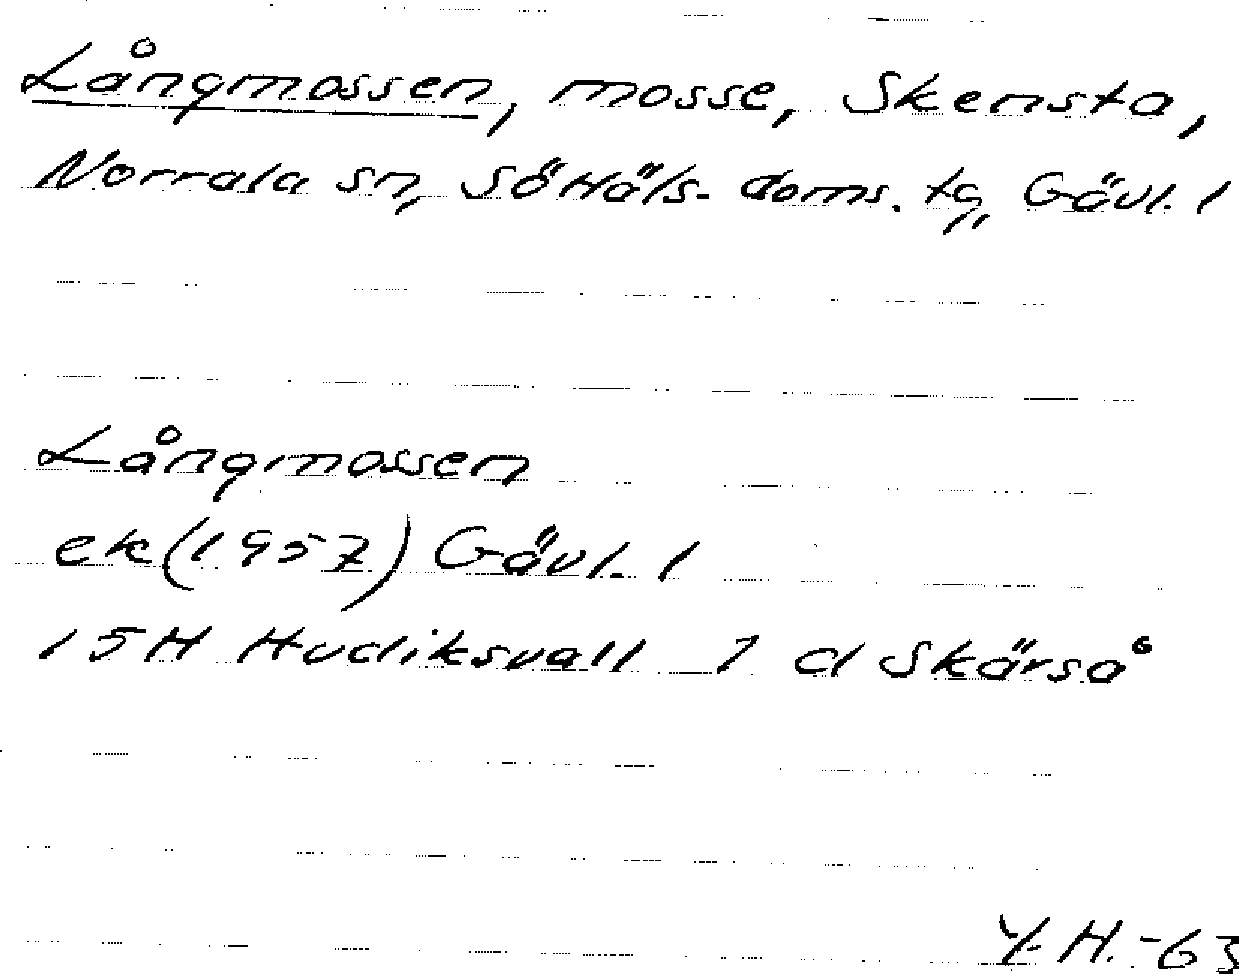 Långmossen, mosse, Skensta,
Norrala sn, SöHäls. doms. tg, Gävl. l
Långmossen
ek (1957) Gävl. l
15H Hudiksvall 7 d Skärså
Y. H. -63